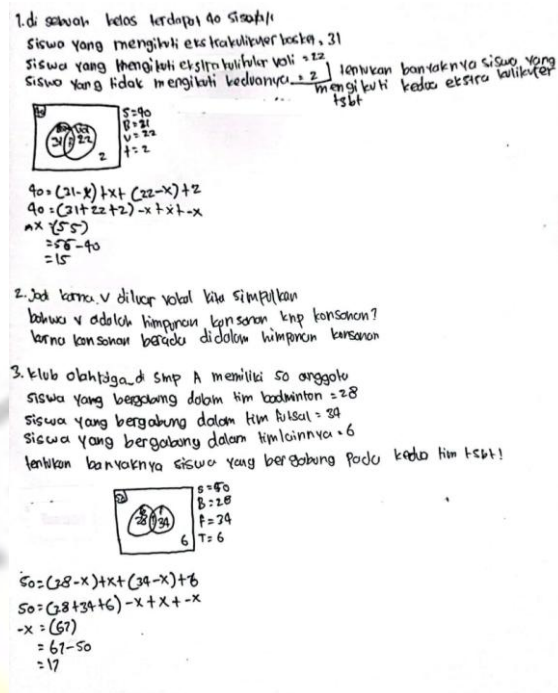 1. di sebuah kelas terdapat 40 siswa/i
Siswa yang mengikuti ekstrakulikuler basket, 31
Siswa yang mengikuti ekstra kulikuler voli = 22
Siswa yang tidak mengikuti keduanya = 2
tentukan banyaknya siswa yang
mengikuti kedua ekstra kulikuler
tsbt
S=40
B=31
V=22
t=2
31
22
2
40=(31-x)+x+(22-x)+2
40=(31+22+2)-x+x+-x
(55)
=55-40
=15
2. Jadi karna V diluar vokal kita simpulkan
bahwa v adalah himpunan konsonan knp konsonan?
karna konsonan berada didalam himpunan konsonan
3. klub olahraga di Smp A memiliki 50 anggota
siswa yang bergabung dalam tim badminton = 28
Siswa yang bergabung dalam tim futsal = 34
Siswa yang bergabung dalam tim lainnya = 6
tentukan banyaknya siswa yang bergabung pada kedua tim tsbt!
S=50
B=28
F=34
T=6
28
34
6
50=(28-x)+x+(34-x)+6
50=(28+34+6)-x+x+-x
-x=(67)
=67-50
=17